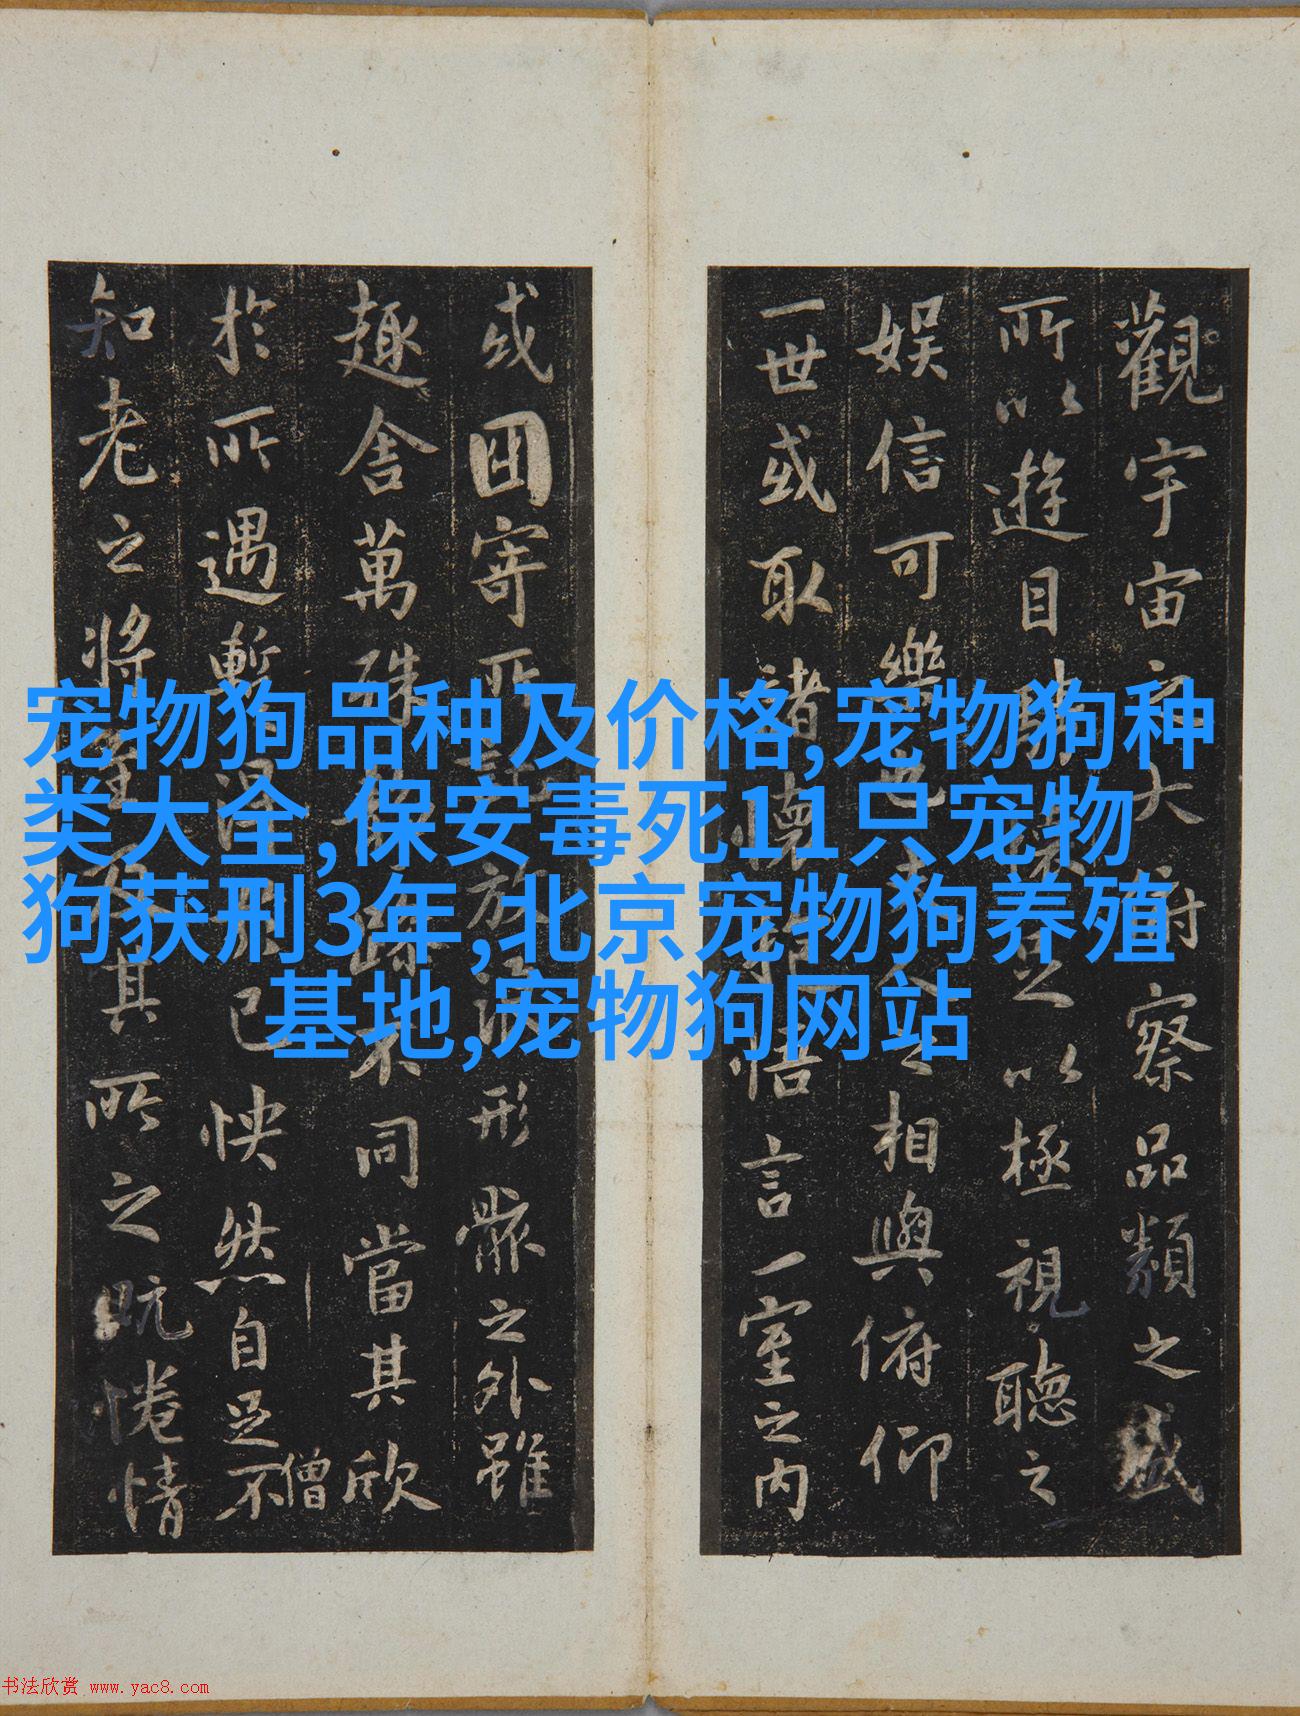 宠物狗品种及价格,宠物狗种
类大全,保安毒死11只宠物
狗获刑3年,北京宠物狗养殖
基地,宠物狗网站
觀宇宙之大俯察品類之盛
所以遊目騁懷足以極視聽之
娛信可樂也夫人之相與俯仰
一世或取諸懷抱悟言一室之內
或因寄所託放浪形骸之外雖
趣舍萬殊靜躁不同當其欣
於所遇暫得於己怏然自足不
僧
知老之將至及其所之既惓情
书法欣赏 www.yac8.com